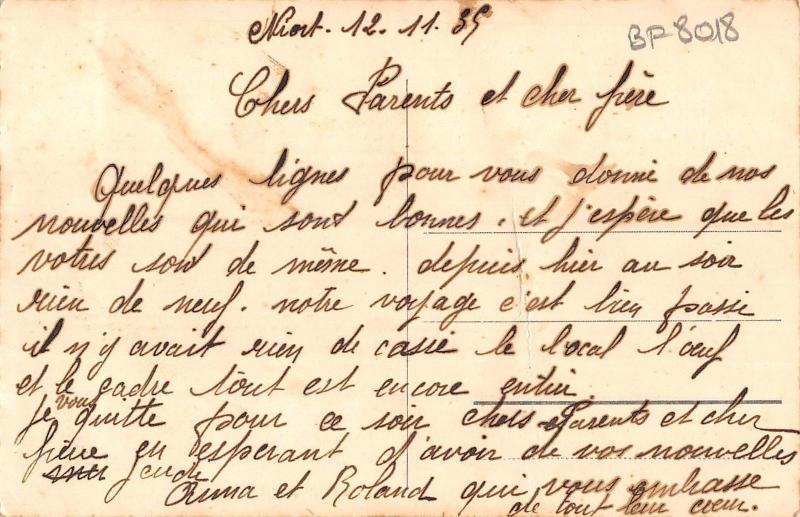 Niort. 12. 11. 35
BF 8018
Chers Parents et cher frère
Quelques lignes pour vous donné de nos
nouvelles qui sont bonnes. et j'espère que les
votres sont de même. depuis hier au soir
rien de neuf. notre voyage c'est bien passé
il n'y avait rien de cassé le bocal l'œuf
et le cadre tout est encore entier.
je vous quitte pour ce soir chers Parents et cher
frère en esperant d'avoir de vos nouvelles
jeudi
et Roland qui vous embrasse
de tout leur cœur.